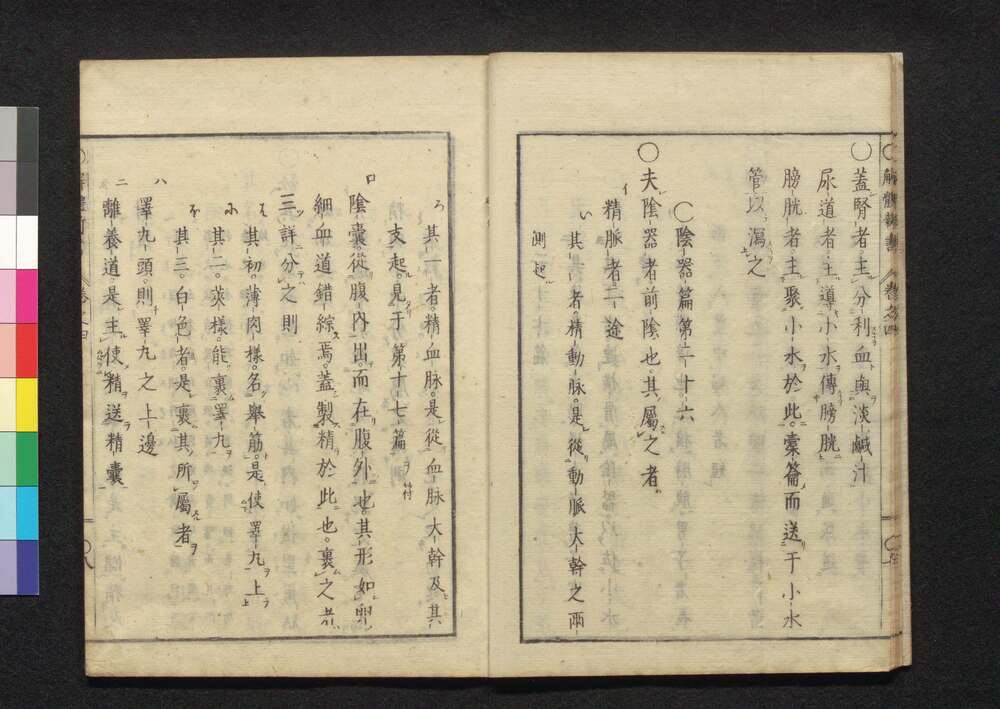 ○蓋腎者主分利血與淡鹹汁
尿道者主導小水傳膀胱
膀胱者主聚小水於此橐籥而送于小水
管以瀉之
○陰器篇第二十六
○夫陰器者前陰也其屬之者
イ精脈者二途
い其一者精動脈是從動脈大幹之兩
側起
ろ其一者精血脈是從血脈大幹及其
支起見于第十七篇
ロ陰囊從腹內出而在腹外也其形如卵
細血道錯綜焉蓋製精於此也裹之者
三詳分之則
は其初薄肉樣名舉筋是使睪丸上
に其二莢樣能裹睪丸
ほ其三白色者是裹其所屬者
ハ睪丸頭則睪丸之上邊
ニ離養道是主使精送精囊